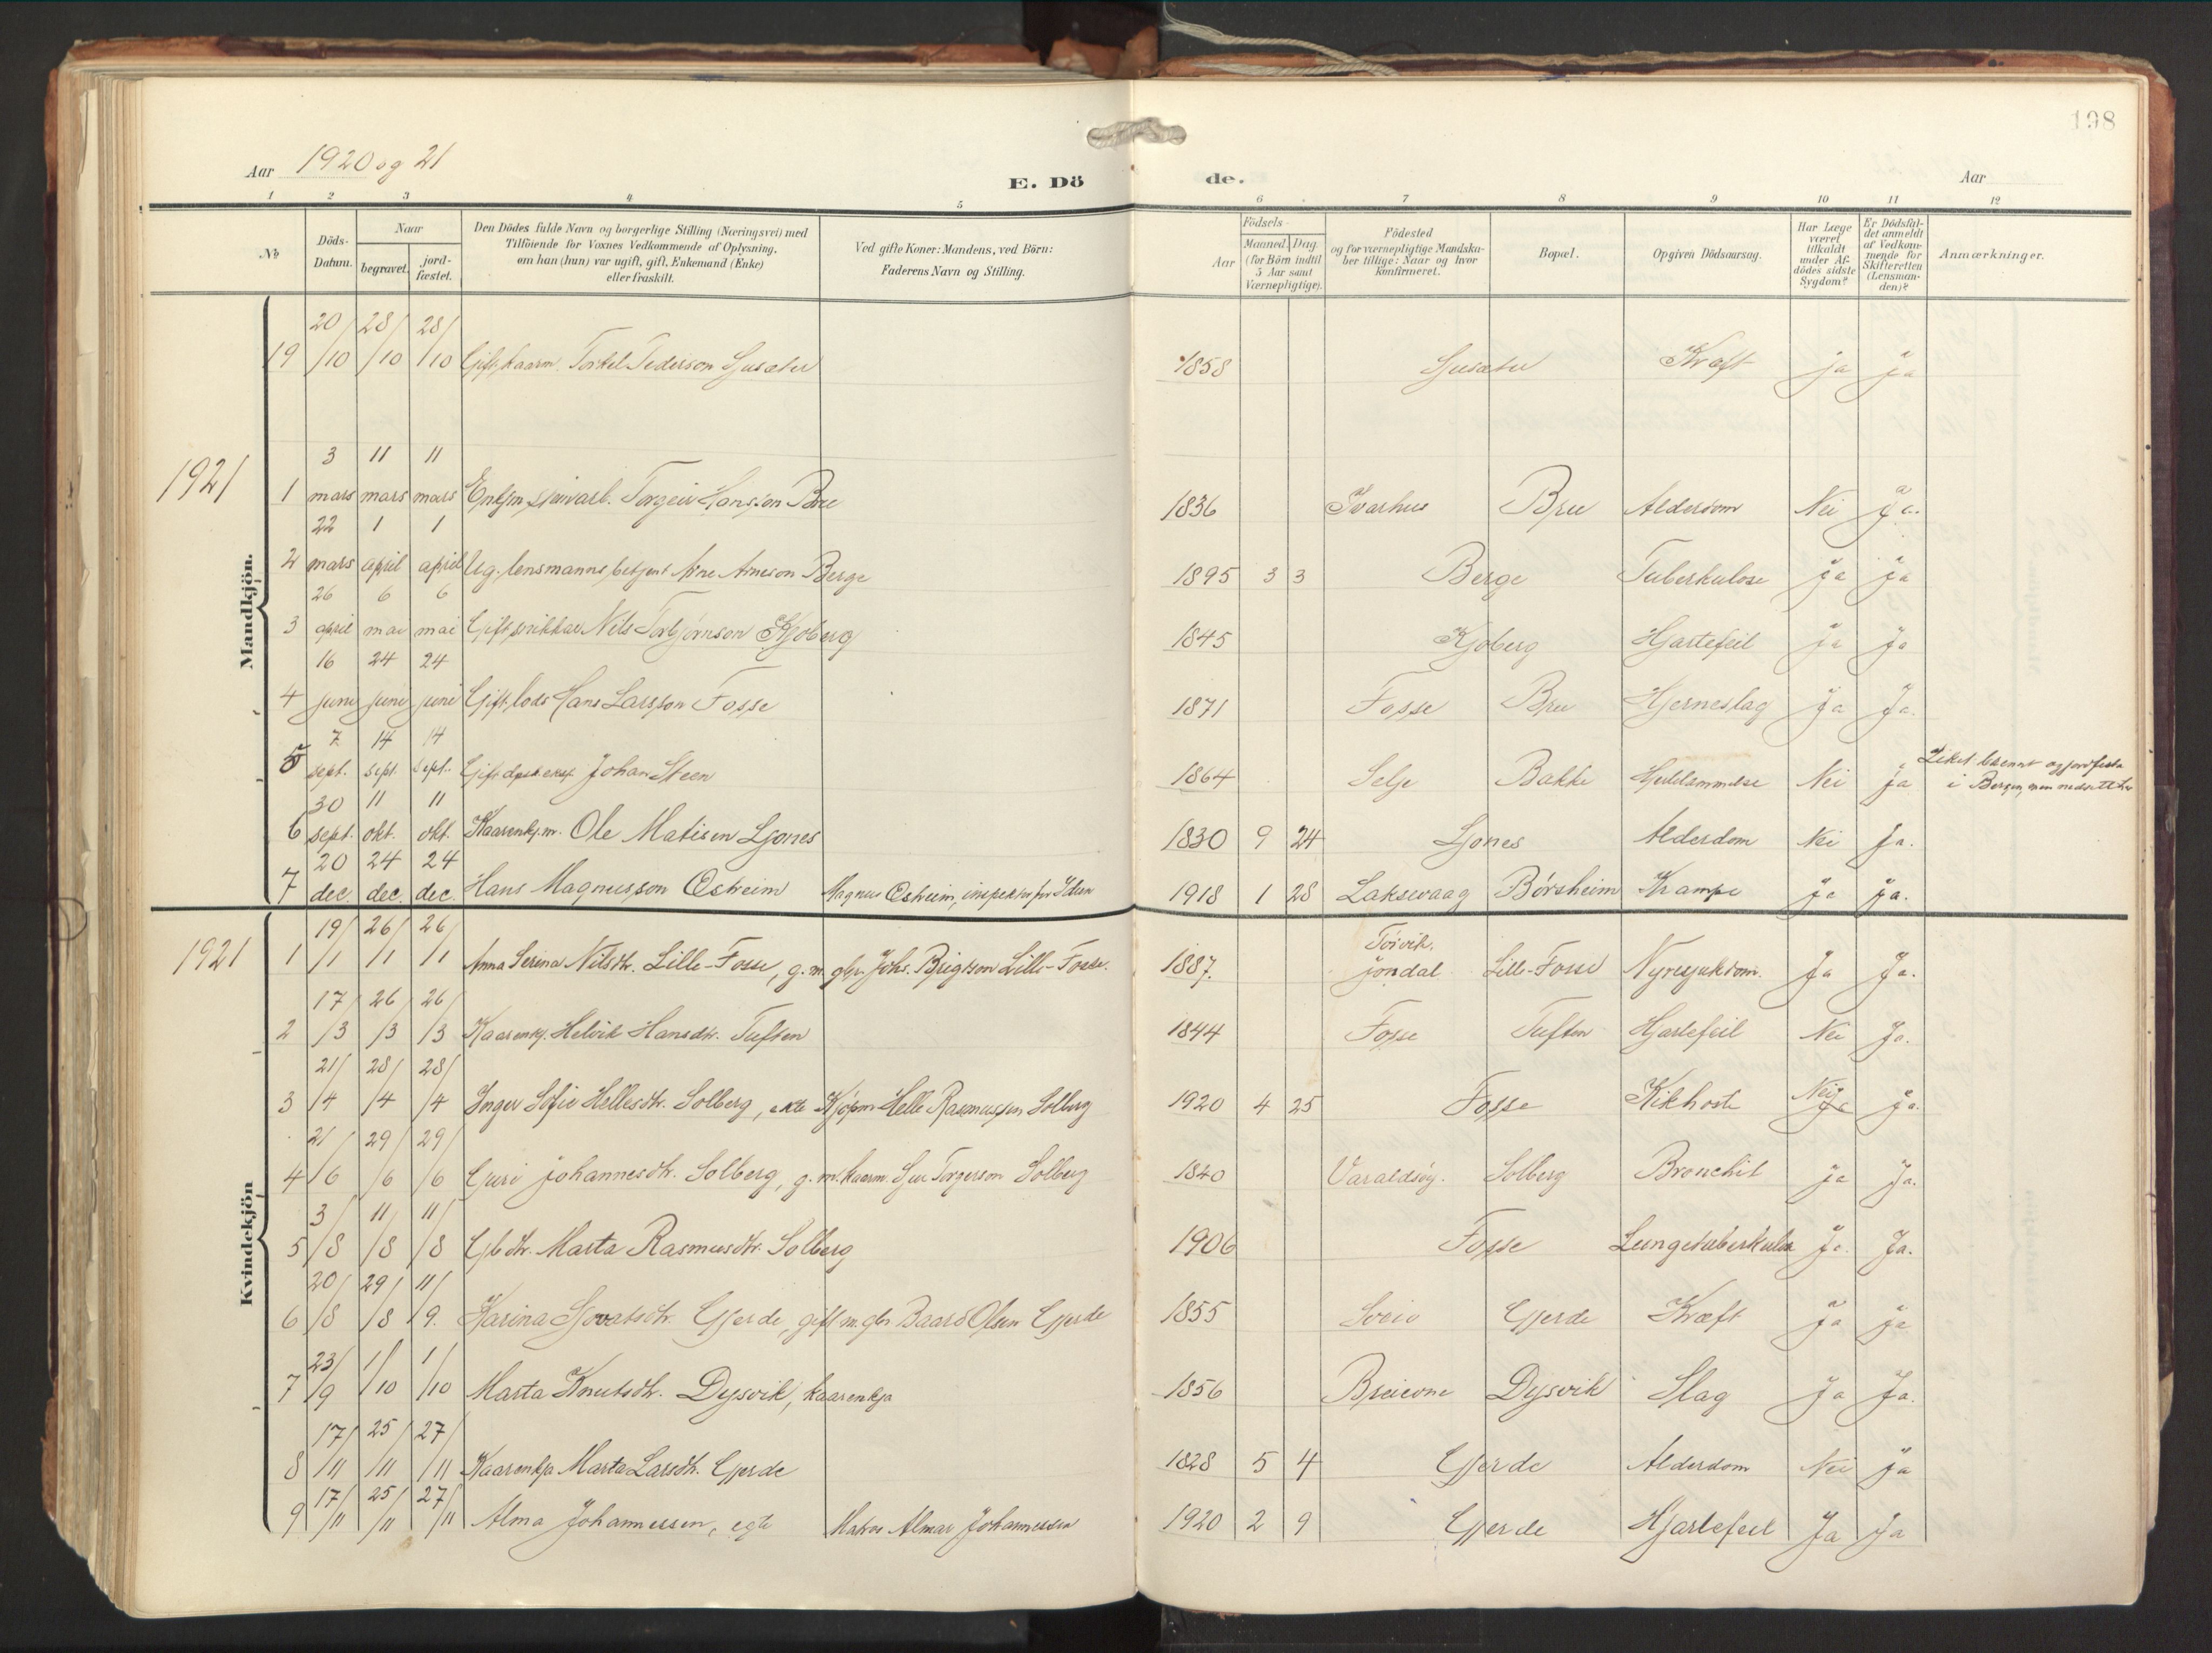 198
Aar 1920 og 21
E. Dö de.
Aar
1 2 3 4 5 6 7 8 9 10 11 12
No
Döds-Datum.
Naar
begravet.
jord-fæstet.
Den Dödes fulde Navn og borgerlige Stilling (Næringsvei) med
Tilföiende for Voxnes Vedkommende af Oplysning,
om han (hun) var ugift, gift, Enkemand (Enke)
eller fraskilt.
Ved gifte Koner: Mandens, ved Börn:
Faderens Navn og Stilling.
Födsels-
Aar
Maaned. Dag.
(for Börn indtil
5 Aar samt
Værnepligtige).
Födested
og for værnepligtige Mandska-
ber tillige: Naar og hvor
Konfirmeret.
Bopæl.
Opgiven Dödsaarsag.
Har Læge
været
tilkaldt
under Af-
dödes sidste
Sygdom?
Er Dödsfal-
det anmeldt
af Vedkom-
mende for
Skifteretten
(Lensman-
den)?
Anmærkninger.
Mandkjön.
19 20/10 28/10 28/10 Gift, kaarm. Torkel Pederson 1858 Kræft ja ja
1921
1 3 mars 11 mars 11 mars Torgeir Hansson Bru 1836 Ivarhus Bru Alderdom Nei Ja.
2 22 mars 1 april 1 april Ug. lensmannsbetjent Arne Arneson Berge 1895 3 3 Berge Tuberkulose Ja Ja
3 26 april 6 mai 6 mai Gift, snikkar Nils Torbjørnson Kjoberg 1845 Kjoberg Hjartefeil Ja Ja
4 16 juni 24 juni 24 juni Gift, lods Hans Larsson Fosse 1871 Fosse Bru Hjerneslag Ja Ja.
5 7 sept. 14 sept. 14 sept. Gift Johan Steen 1864 Selje Bakke Nei ja Liket brennt og jordfesta
i Bergen, men nedsatt her
6 30 sept. 11 okt. 11 okt. Kaarenkjm. Ole Matisen Ljones 1830 9 24 Ljones Alderdom Nei Ja.
7 20 dec. 24 dec. 24 dec. Hans Magnusson Oestreim Magnus Oestreim, 1918 1 28 Laksevaag Børsheim Krampe Ja Ja.
Kvindekjön
1921
1 19/1 26/1 26/1 Anna Serina Nilsdtr. Lille-Fosse, g. m. gbr. Johs. Brigtson Lille-Fosse. 1887. Jondal Lille-Fosse Nyresjukdom. Ja Ja.
2 17/3 26/3 26/3 Kaarenkj. Helvik Hansdtr. Tuften 1844 Fosse Tuften Hjartefeil Nei Ja.
3 21/4 28/4 28/4 Inger Sofie Hellesdtr. Solberg, ekte Kjøpm. Helle Rasmussen Solberg 1920 4 25 Fosse Kikhoste Nei Ja.
4 21/6 29/6 29/6 Guri Johannesdtr. Solberg, g. m. kaarm. Sjur Torgerson Solberg 1840 Varaldsøy. Solberg Bronchit Ja Ja.
5 3/8 11/8 11/8 Gbdtr. Marta Rasmusdtr. Solberg 1906 Fosse Lungetuberkulose Ja. Ja.
6 20/8 29/8 11/9. Karina Sjovatsdtr. Gjerde, gift m. gbr. Baard Olsen Gjerde 1855 Sveio Gjerde Kræft Ja Ja
7 23/9 1/10 1/10 Marta Knutsdtr. Dysvik, kaarenkja 1856 Dysvik Slag Ja Ja.
8 17/11 25/11 27/11 Kaarenkja Marta Larsdtr. Gjerde 1828 5 4 Gjerde Alderdom Nei Ja
9 17/11 25/11 27/11 Alma Johannessen, egte Matros Almar Johannessen 1920 2 9 Gjerde Hjartefeil Ja Ja